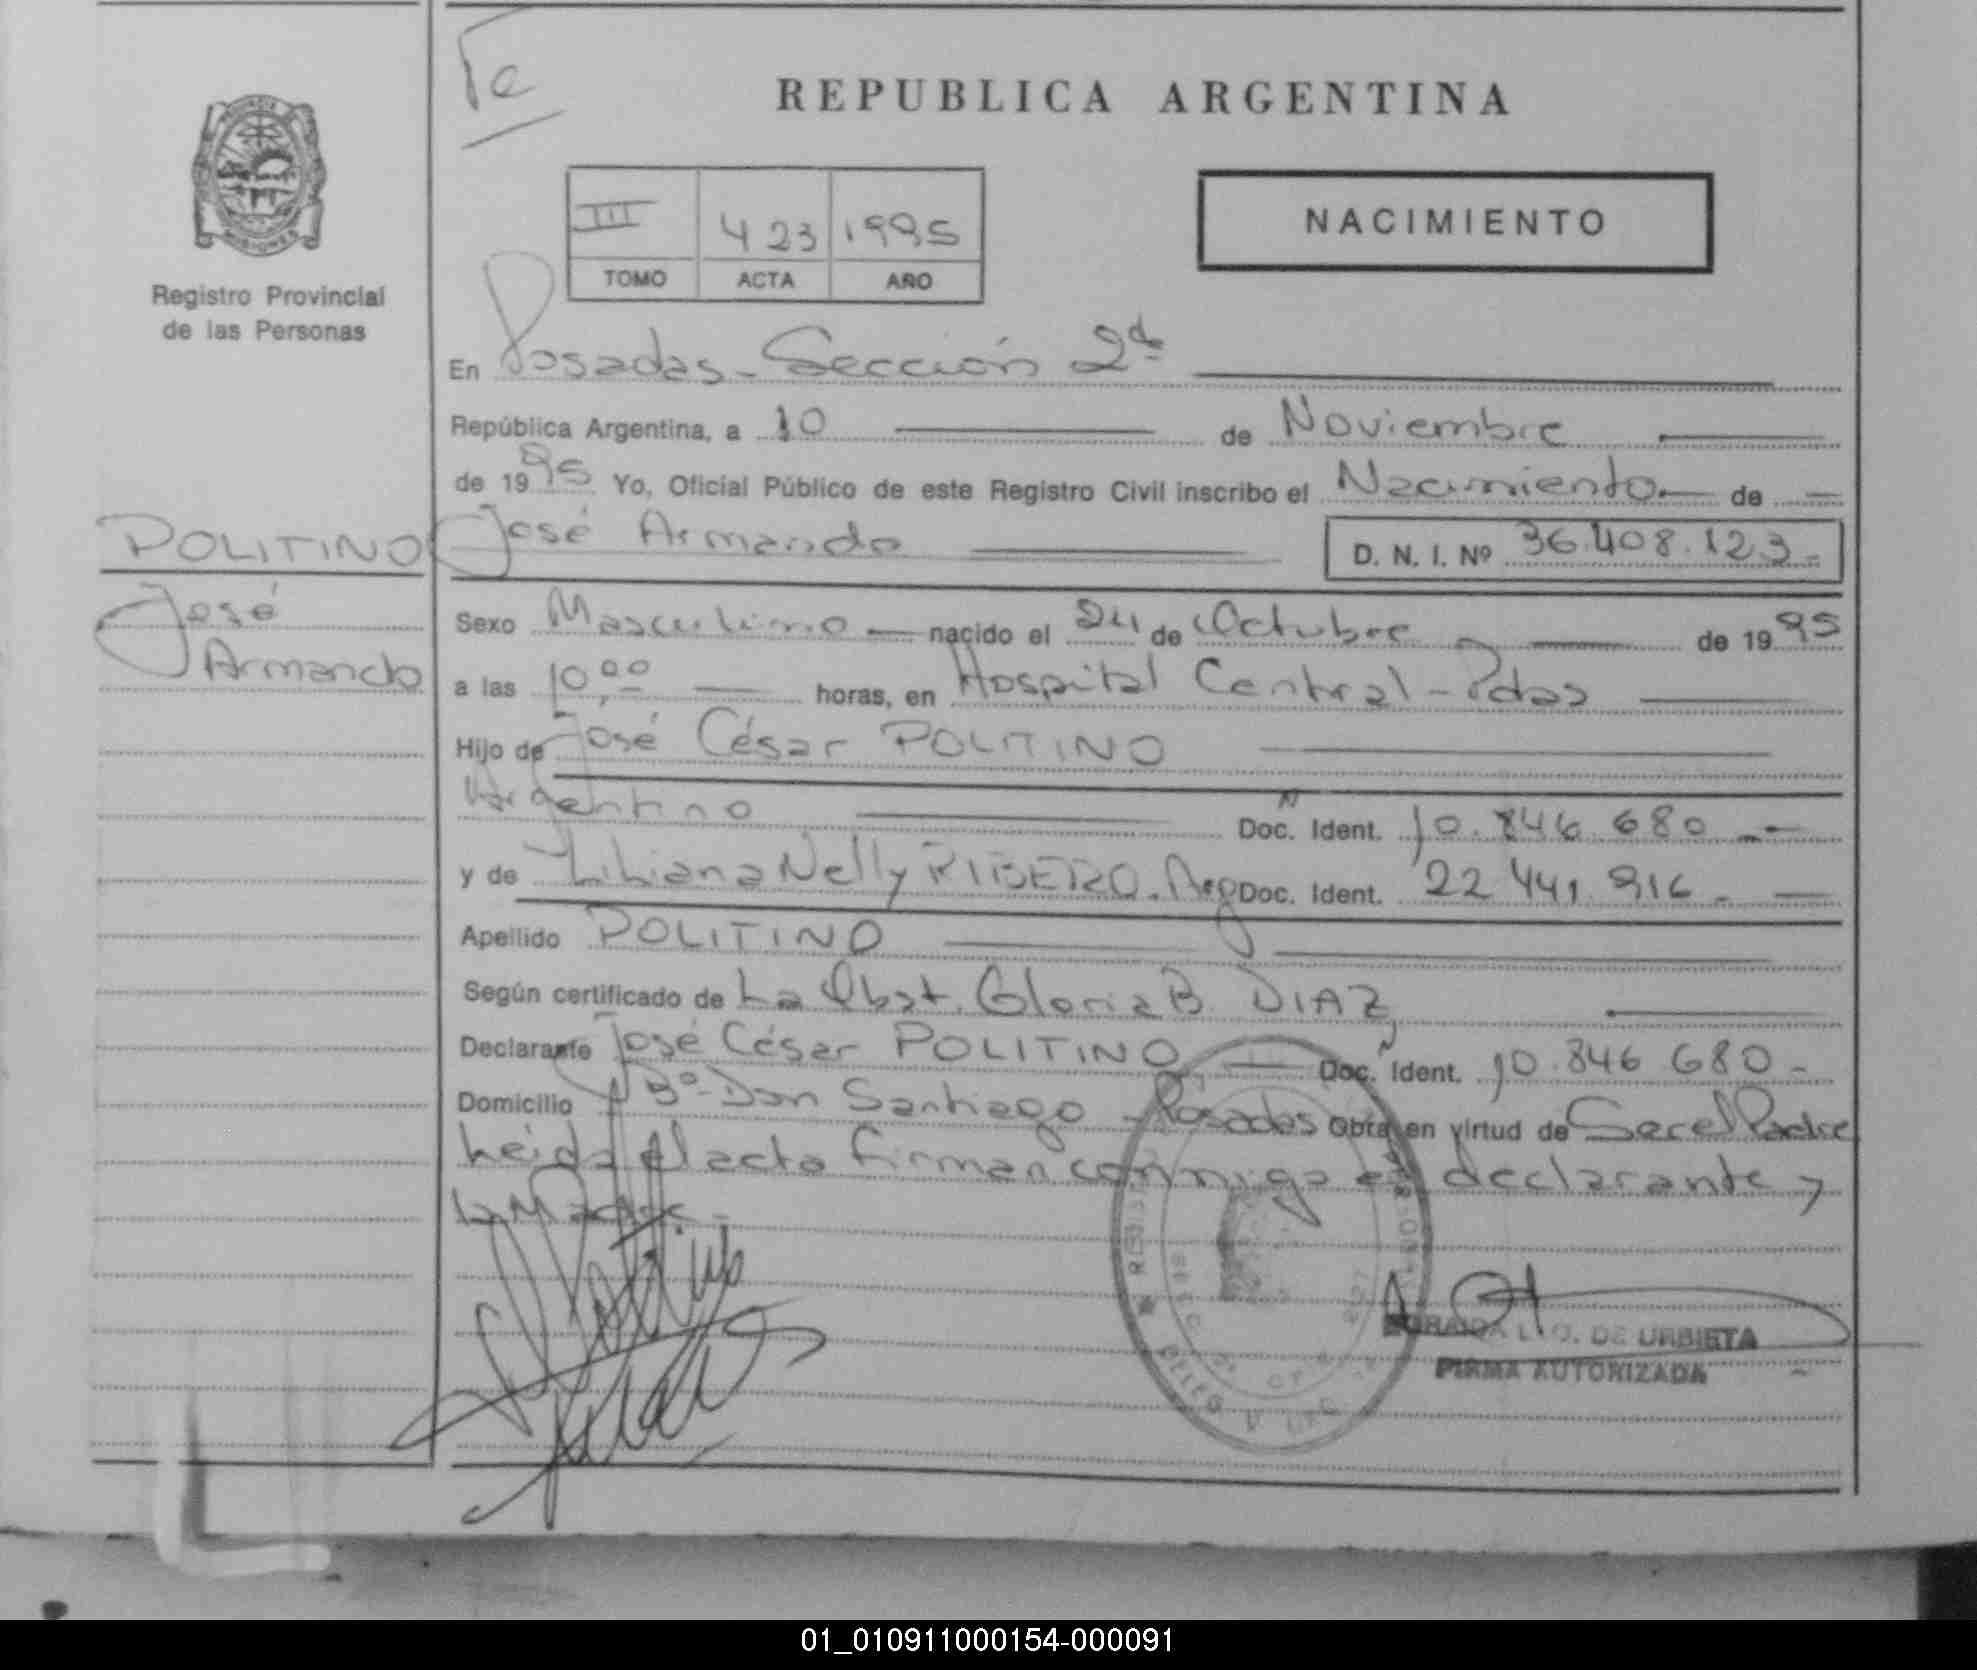 Te
REPUBLICA ARGENTINA
III 423 1995
TOMO ACTA AÑO
NACIMIENTO
MISIONES
Registro Provincial
de las Personas
En Posadas - Sección 2da
República Argentina, a 10 de Noviembre
de 1995 Yo, Oficial Público de este Registro Civil inscribo el Nacimiento de
José Armando D. N. I. Nº 36.408.123.-
POLITINO
José
Armando
Sexo Masculino nacido el 24 de Octubre de 1995
a las 10,00 horas, en Hospital Central - Pdas
Hijo de José César POLITINO
Argentino Doc. Ident. 10.846.680
y de Liliana Nelly RIBEIRO. Arg Doc. Ident. 22.441.916.-
Apellido POLITINO
Según certificado de La Obst. Gloria B. DIAZ
Declarante José César POLITINO Doc. Ident. 10.846.680-
Domicilio Bº Don Santiago - Posadas Obra en virtud de Ser el Padre
Leida el acta firman conmigo el declarante y
la Madre.-
L. O. DE URBIETA
FIRMA AUTORIZADA
01_010911000154-000091